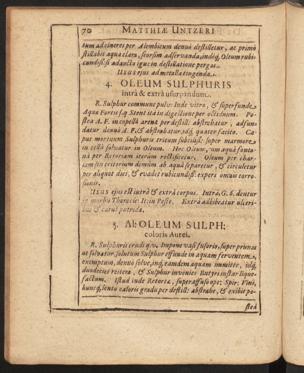 70 MATTHIÆ UNTZERI
tum ad cineres per Alembicum denuò destilletur, ac primò
stillabit aqua clara, seorsim adservanda, indeq́; Oleum rubi-
cundissi adaucto igne in destillatione pergas.
Usus ejus ad metalla tingenda.
4. OLEUM SULPHURIS
intra & extra usurpandum.
R. Sulphur commune pulv: Inde vitro, & superfunde
Aqua Fortis stent ita in digestione per octiduum. Po-
stea A. F. in cupellâ arenæ per destill: abstrahatur, adfun-
datur denuò A. F. & abstrahatur, idq́; quater facito. Ca-
put mortuum Sulphuris tritum subtiliss: super marmore,
in cellâ solvatur in Oleum. Hoc Oleum, cum aquâ
per Retortam iterùm rectificetur. Oleum per
iterùm demùm ab aquâ separetur, & circuletur
per aliquot dies, & evadet rubicundiss: expers omnis corro-
sionis.
Usus ejus est intrà & extrà corpus. Intrà, G. 6. dentur
in morbis Thoracis: It: in Peste. Extrà adhibeatur ulceri-
bus & carni putridæ.
5. Al: OLEUM SULPH:
coloris Aurei.
R. Sulphuris crudi q. v. Impone vasi fusorio, super prunis
ut solvatur, solutum Sulphur effunde in aquam ferventem,
exemptum, denuò solve, inq́; eandem aquam immitte, idq́;
duodecies reitera, & Sulphur invenies Butyri instar lique-
factum. Istud inde Retortæ, superaffuso opt: Spir: Vini,
huncq́; lento caloris gradu per destill: abstrahe, & exibit po-
stea